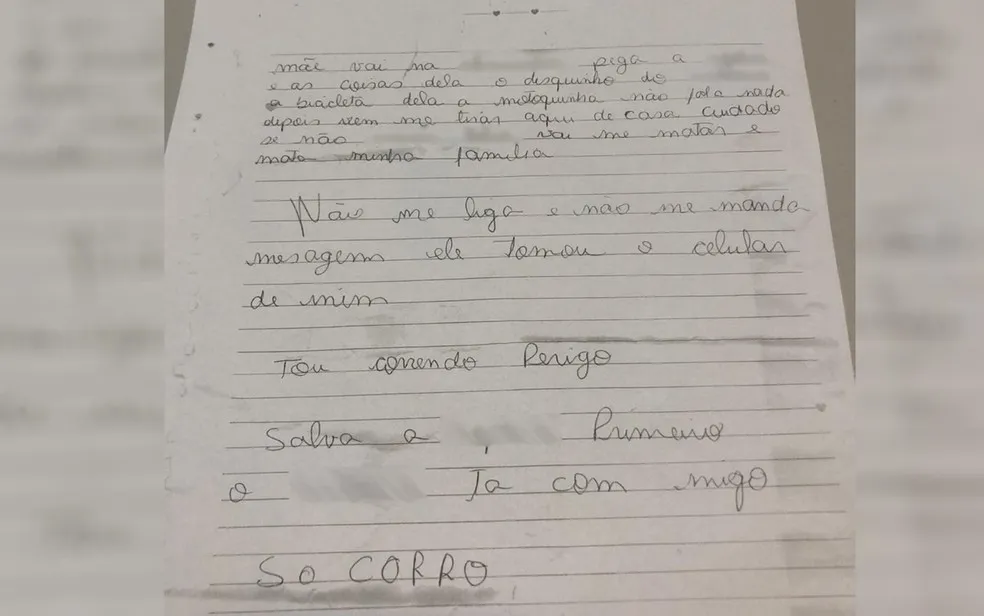 mãe vai na pega a
e as coisas dela o disquinho do
a bicicleta dela a motoquinha não fala nada
depois vem me tirar aqui de casa cuidado
se não vai me matar e
mata minha familia
Não me liga e não me manda
mesagem ele tomou o celular
de mim
Tou correndo Perigo
Salva a , Primeiro
o Ta com migo
SO CORRO